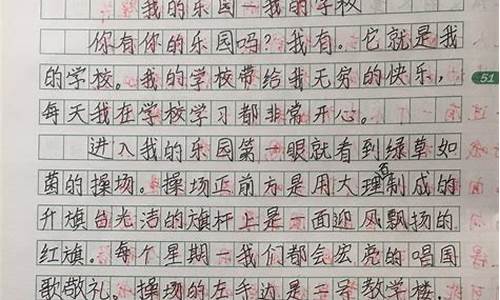 我的乐园一我的学校
你有你的乐园吗?我有。它就是我
的学校。我的学校带给我无穷的快乐,
每天我在学校学习都非常开心。
进入我的乐园第一眼就看到绿草如
菌的操场。操场正前方是用大理石制成的
升旗台光洁的旗杆上是一面迎风飘扬的
红旗。每个星期一我们都会宏亮的唱国
歌敬礼。操场的左手边是三号教学楼,
51